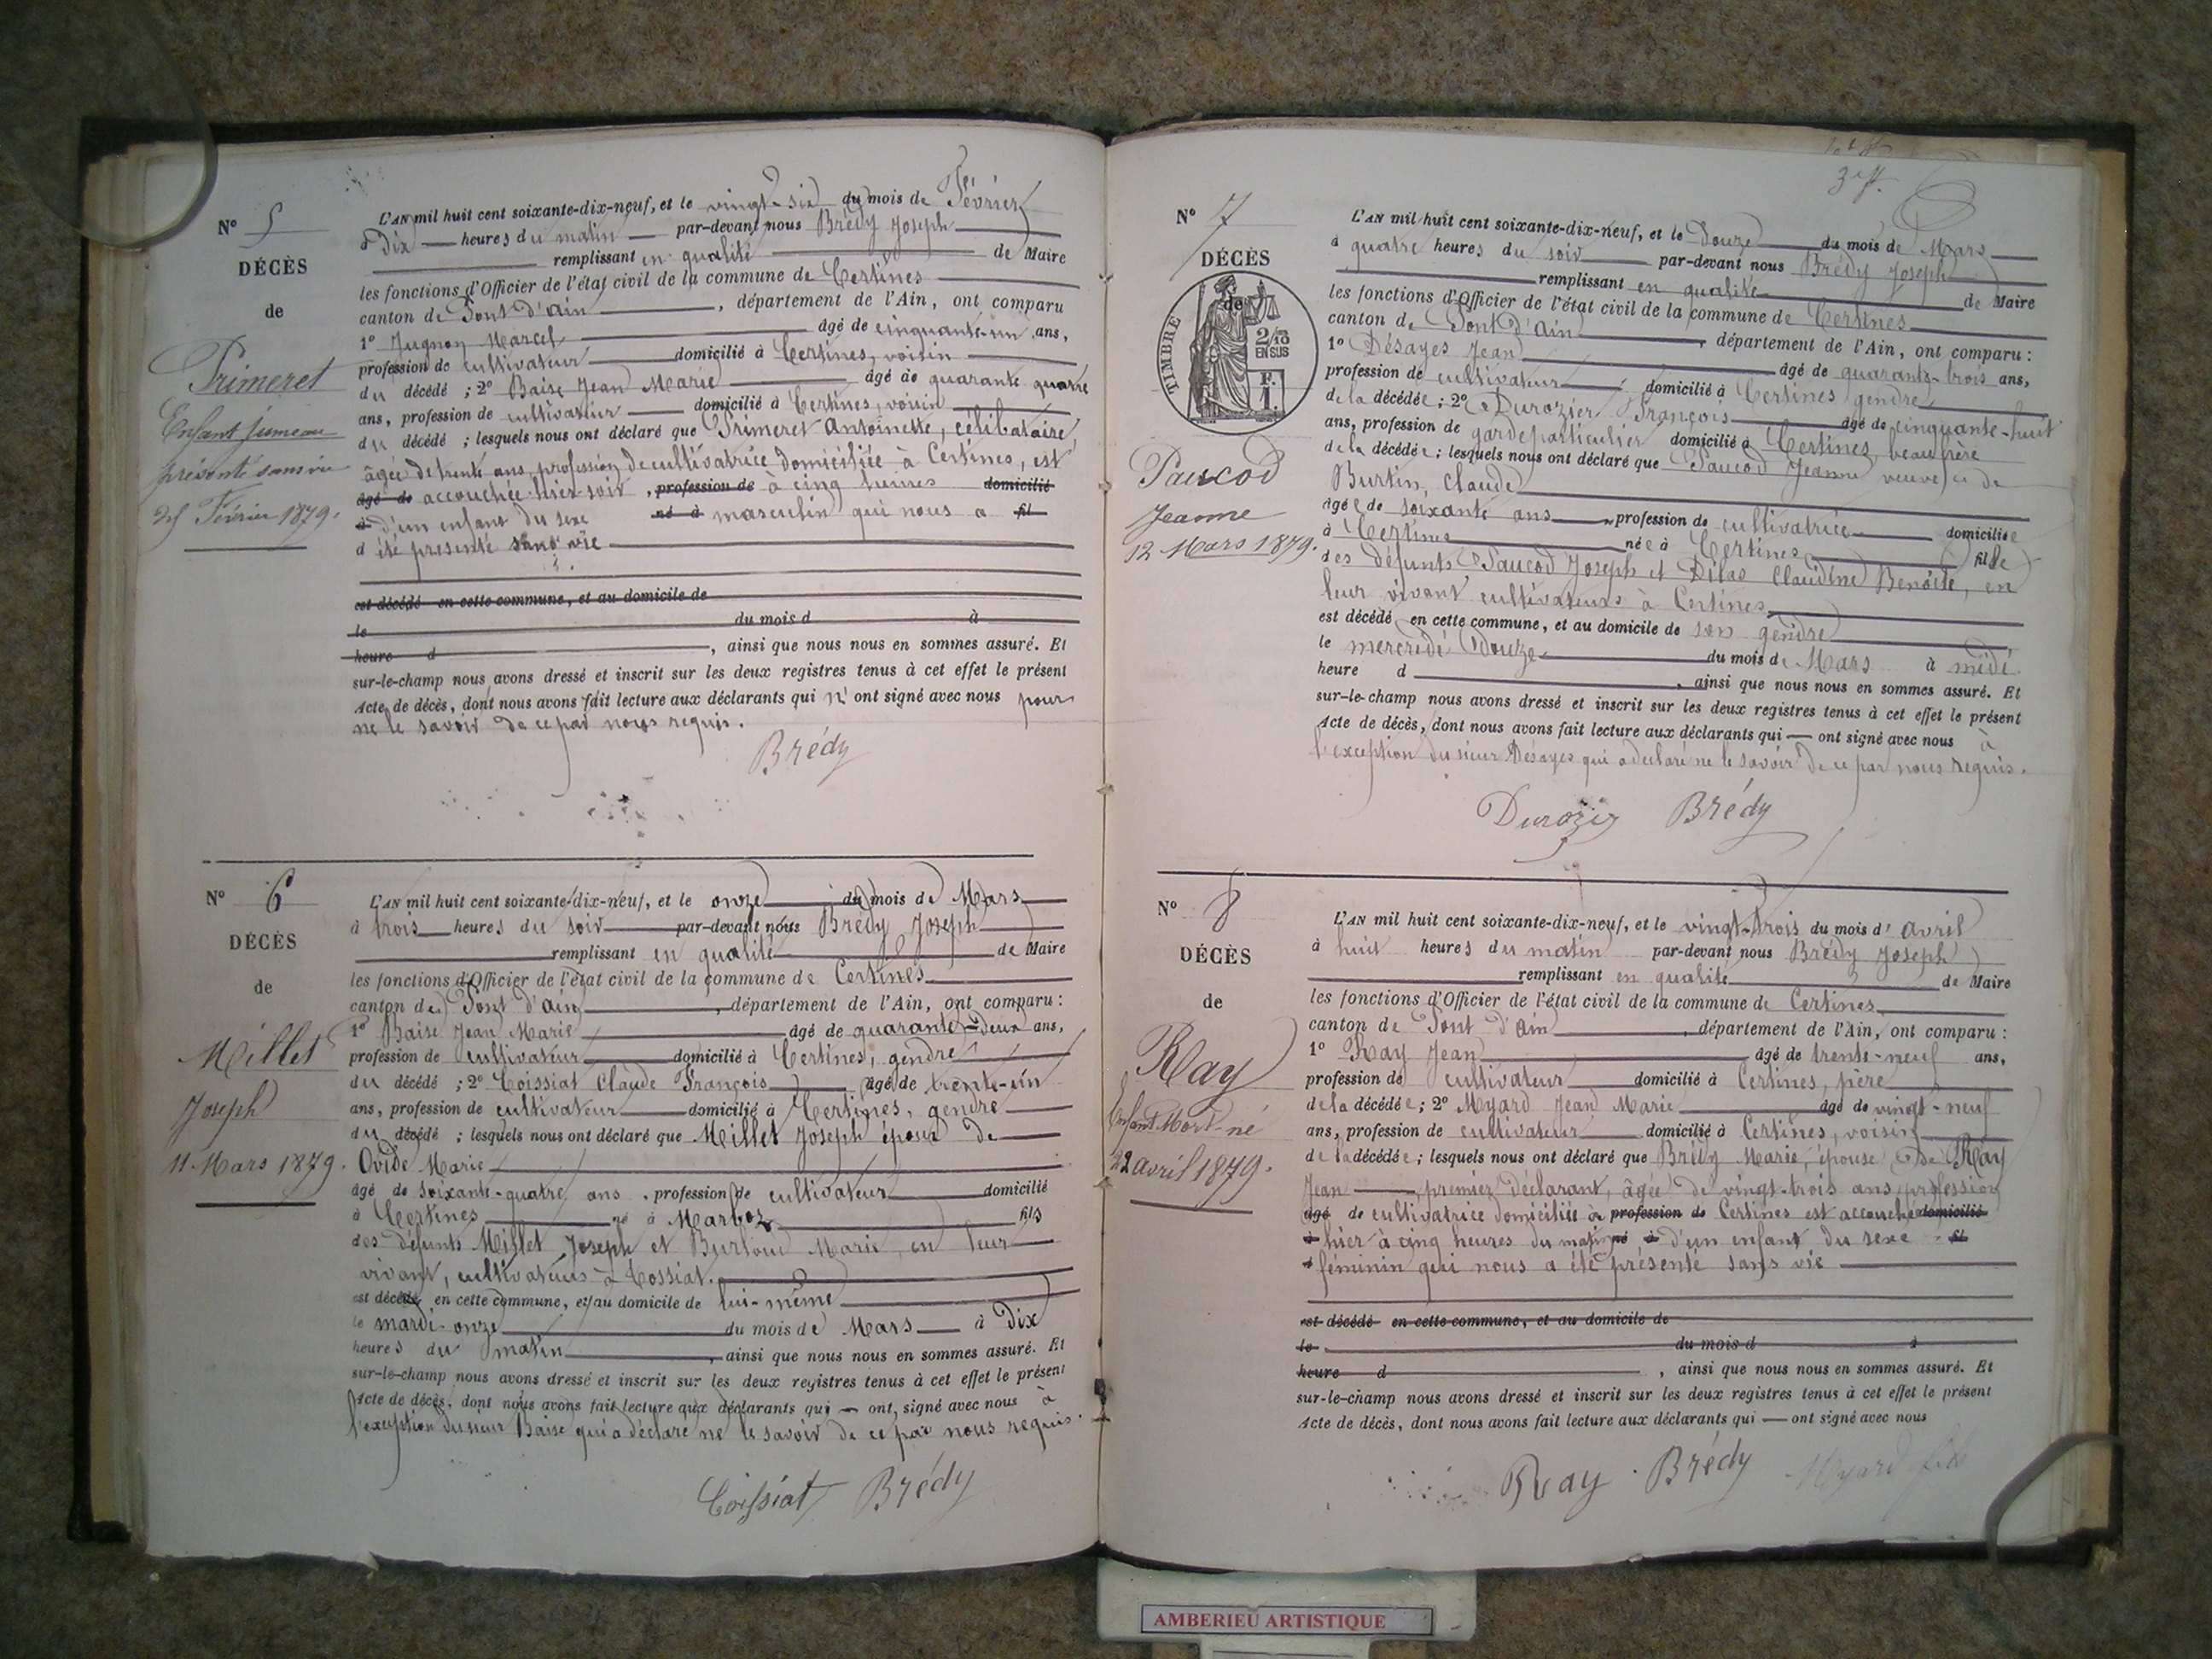 N° 5
DÉCÈS
de
Primeret
Enfant jumeau
présenté sans vie
25 Février 1879.
L'AN mil huit cent soixante-dix-neuf, et le vingt-six du mois de Février
à Dix heures du matin par-devant nous Brédy Joseph
remplissant en qualité de Maire
les fonctions d'Officier de l'état civil de la commune de Certines
canton de Pont d'Ain, département de l'Ain, ont comparu
1° Jugnon Marcel âgé de cinquante-un ans,
profession de cultivateur domicilié à Certines, voisin
du décédé ; 2° Baise Jean Marie âgé de quarante quatre
ans, profession de cultivateur domicilié à Certines, voisin
du décédé ; lesquels nous ont déclaré que Primeret Antoinette, célibataire,
âgée de trente ans, profession de cultivatrice domiciliée à Certines, est
âgé de accouchée hier soir, profession de à cinq heures domicilié
à d'un enfant du sexe né à masculin qui nous a fil
d été présenté sans vie
est décédé en cette commune, et au domicile de
le du mois d à
heure d , ainsi que nous nous en sommes assuré. Et
sur-le-champ nous avons dressé et inscrit sur les deux registres tenus à cet effet le présent
Acte de décès, dont nous avons fait lecture aux déclarants qui n' ont signé avec nous pour
ne le savoir de ce par nous requis.
Brédy
N° 6
DÉCÈS
de
Millet
Joseph
11 Mars 1879.
L'AN mil huit cent soixante-dix-neuf, et le onze du mois de Mars
à trois heures du soir par-devant nous Brédy Joseph
remplissant en qualité de Maire
les fonctions d'Officier de l'état civil de la commune de Certines
canton de Pont d'Ain, département de l'Ain, ont comparu :
1° Baise Jean Marie âgé de quarante-deux ans,
profession de cultivateur domicilié à Certines, gendre
du décédé ; 2° Coissiat Claude François âgé de trente-un
ans, profession de cultivateur domicilié à Certines, gendre
du décédé ; lesquels nous ont déclaré que Millet Joseph époux de
Ovide Marie
âgé de soixante-quatre ans, profession de cultivateur domicilié
à Certines né à Marboz fils
des défunts Millet Joseph et Burtoud Marie, en leur
vivant, cultivateurs à Tossiat.
est décédé en cette commune, et au domicile de lui-même
le mardi onze du mois de Mars à Dix
heures du matin, ainsi que nous nous en sommes assuré. Et
sur-le-champ nous avons dressé et inscrit sur les deux registres tenus à cet effet le présent
Acte de décès, dont nous avons fait lecture aux déclarants qui — ont signé avec nous à
l'exception du sieur Baise qui a déclaré ne le savoir de ce par nous requis.
Coissiat Brédy
37.
N° 7
DÉCÈS
de
TIMBRE
2/10
EN SUS
F.
1.
Paucod
Jeanne
12 Mars 1879.
L'AN mil huit cent soixante-dix-neuf, et le Douze du mois de Mars
à quatre heures du soir par-devant nous Brédy Joseph
remplissant en qualité de Maire
les fonctions d'Officier de l'état civil de la commune de Certines
canton de Pont d'Ain, département de l'Ain, ont comparu :
1° Désayes Jean âgé de quarante-trois ans,
profession de cultivateur domicilié à Certines gendre
de la décédée ; 2° Durozier François âgé de cinquante-huit
ans, profession de garde particulier domicilié à Certines, beau frère
de la décédée ; lesquels nous ont déclaré que Paucod Jeanne veuve de
Burtin, Claude
âgée de soixante ans profession de cultivatrice domiciliée
à Certines née à Certines fille
des défunts Paucod Joseph et Dilas Claudine Benoite, en
leur vivant cultivateurs à Certines
est décédé en cette commune, et au domicile de son gendre
le mercredi Douze du mois de Mars à midi
heure d , ainsi que nous nous en sommes assuré. Et
sur-le-champ nous avons dressé et inscrit sur les deux registres tenus à cet effet le présent
Acte de décès, dont nous avons fait lecture aux déclarants qui — ont signé avec nous à
l'exception du sieur Désayes qui a déclaré ne le savoir de ce par nous requis.
Durozier Brédy
N° 8
DÉCÈS
de
Ray
Enfant Mort-né
22 avril 1879.
L'AN mil huit cent soixante-dix-neuf, et le vingt-trois du mois d' avril
à huit heures du matin par-devant nous Brédy Joseph
remplissant en qualité de Maire
les fonctions d'Officier de l'état civil de la commune de Certines
canton de Pont d'Ain, département de l'Ain, ont comparu :
1° Ray Jean âgé de trente-neuf ans,
profession de cultivateur domicilié à Certines, père
de la décédée ; 2° Myard Jean Marie âgé de vingt-neuf
ans, profession de cultivateur domicilié à Certines, voisin
de la décédée ; lesquels nous ont déclaré que Brédy Marie, épouse de Ray
Jean, premier déclarant, âgée de vingt-trois ans, profession
âgé de cultivatrice domiciliée à profession de Certines est accouchée domicilié
à hier à cinq heures du matin né à d'un enfant du sexe fil
d féminin qui nous a été présenté sans vie
est décédé en cette commune, et au domicile de
le du mois d à
heure d , ainsi que nous nous en sommes assuré. Et
sur-le-champ nous avons dressé et inscrit sur les deux registres tenus à cet effet le présent
Acte de décès, dont nous avons fait lecture aux déclarants qui — ont signé avec nous
Ray Brédy Myard
AMBERIEU ARTISTIQUE